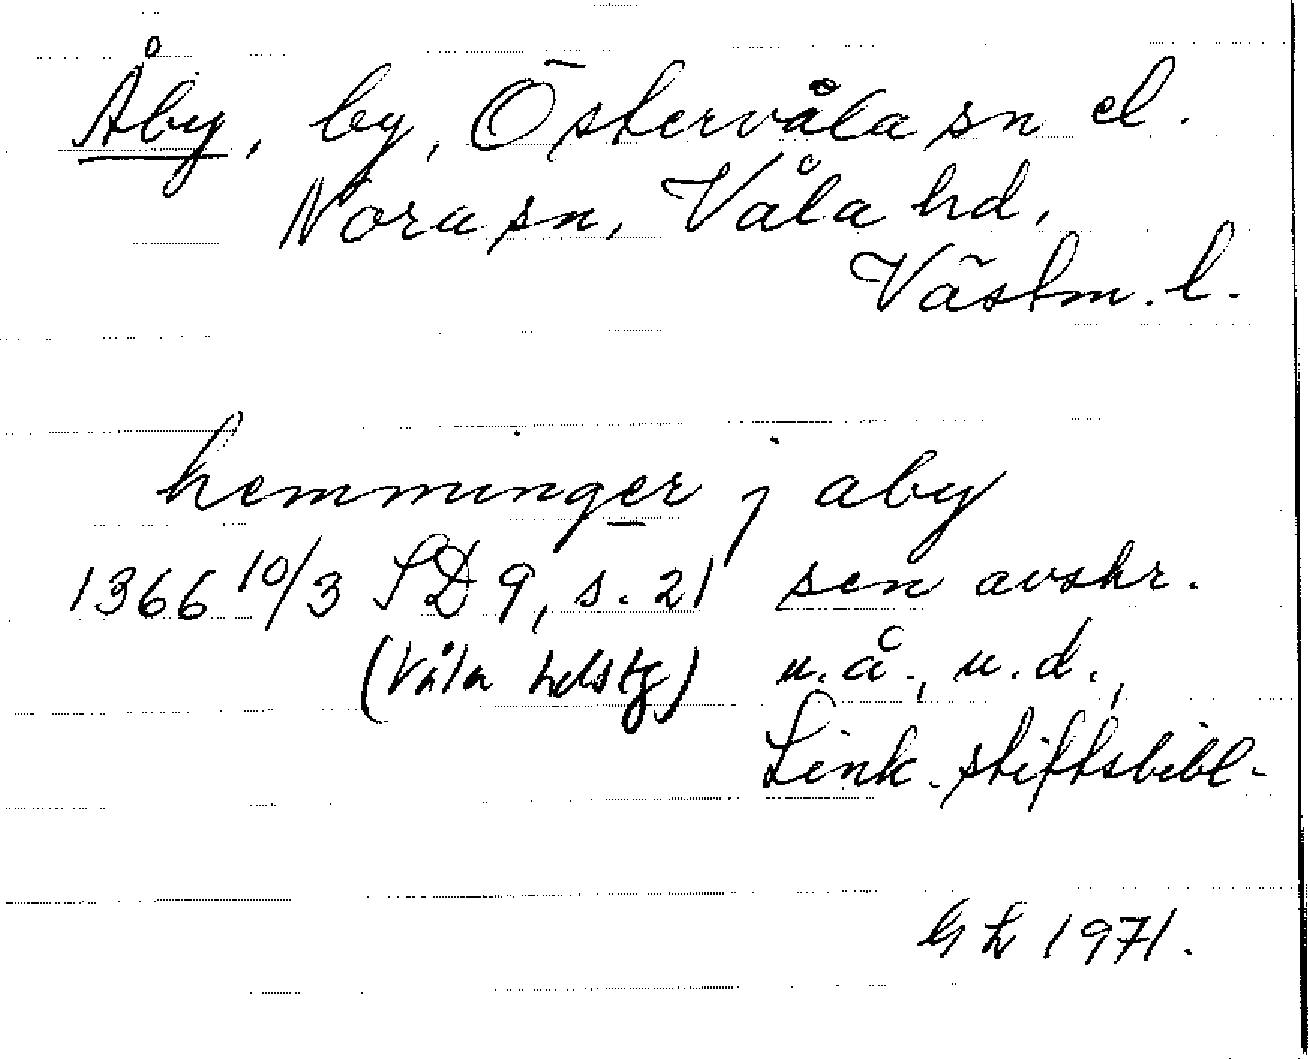 Åby, by, Östervåla sn el.
Nora sn, Våla hd,
Västm. l.
hemminger j aby
1366 10/3 SD 9, s. 21 sen avskr.
(Våla hdstg) u.å., u.d.,
Link. stiftsbibl.
GL 1971.